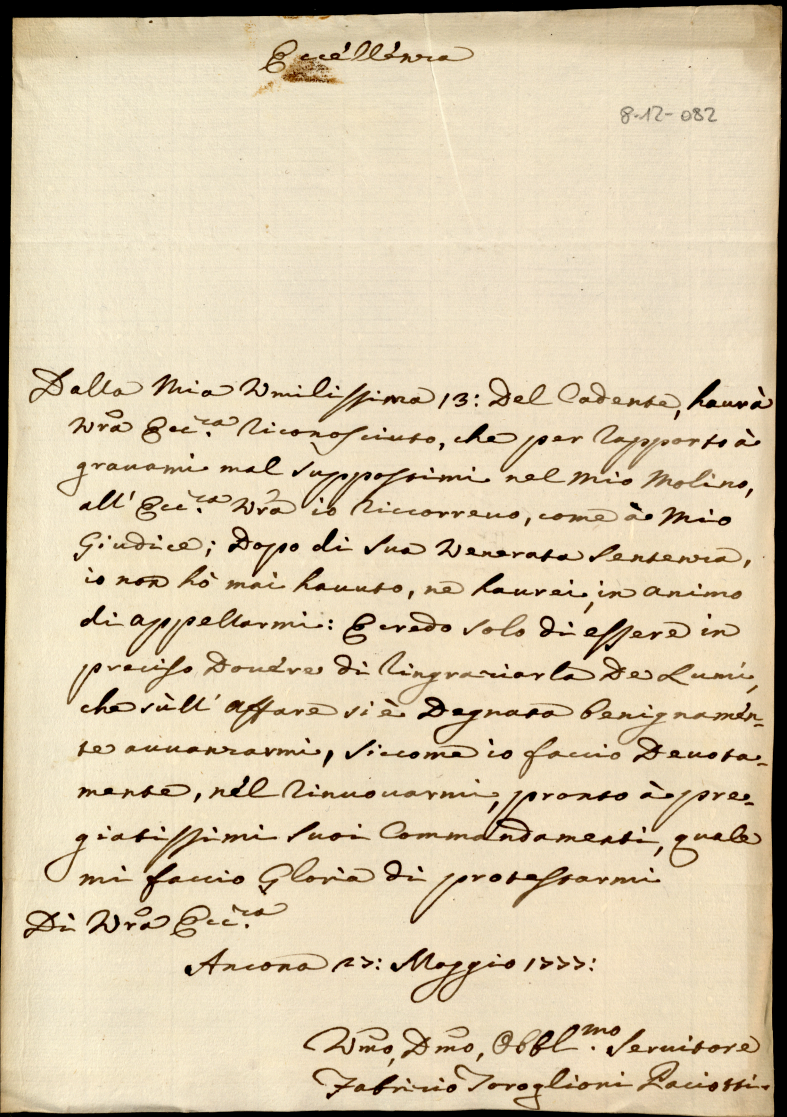 Eccéllénza
8-12-082
Dalla Mia Vmilissima 13: Del Cadente, haurà
Vrã Ecc.ᶻᵃ riconosciuto, che per rapporto à
grauami mal suppostimi nel mio Molino,
all' Ecc.ᶻᵃ Vrã io riccorreuo, come à Mio
Giudice; Dopo di sua Venerata sentenza,
io non hò mai hauuto, ne haurei, in animo
di appellarmi: E credo solo di essere in
preciso Douére di ringraziarla De Lumi,
che sùll' affare si è Degnata benignamén-
te auuanzarmi, siccome io faccio Deuota-
mente, nél rinuouarmi, pronto à pre-
giatissimi suoi Commandamenti, quale
mi faccio Gloria di protestarmi
Di Vrã Ecc.ᶻᵃ
Ancona 27: Maggio 1777:
Vm̃o, Dm̃o, Obbl.ᵐᵒ Seruitore
Fabrizio Paciotti